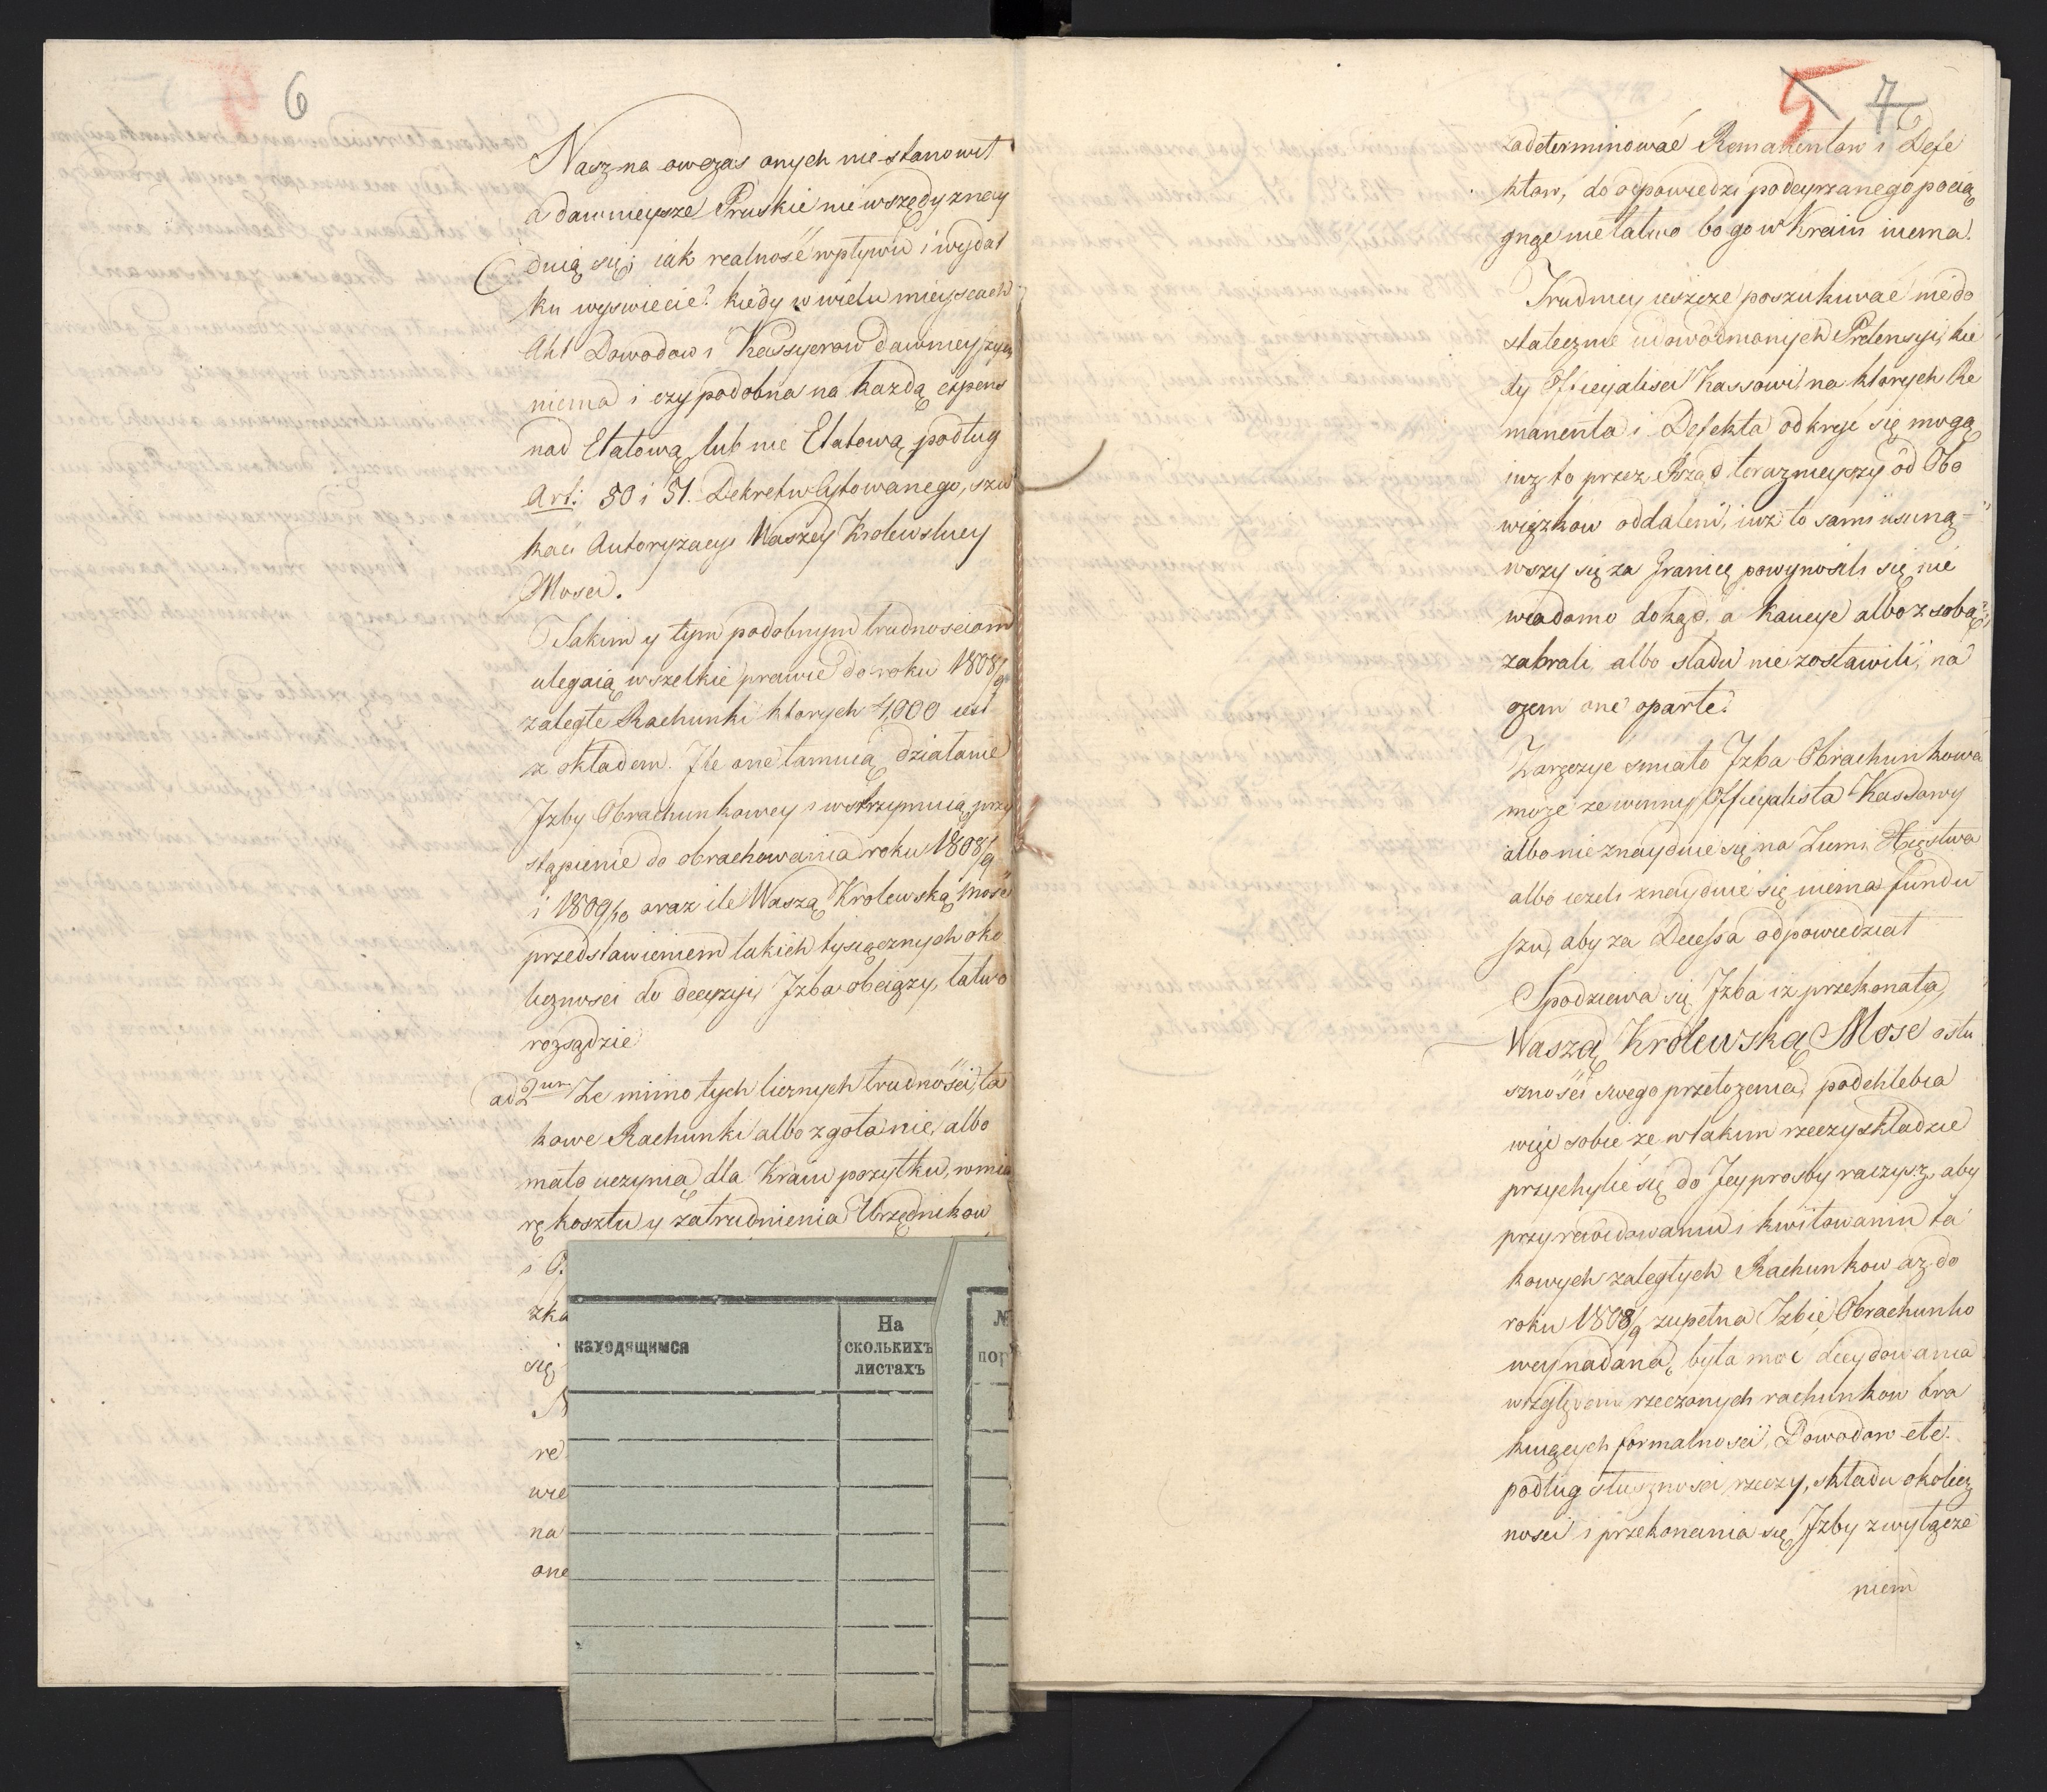 6
Nasz na owczas onych nie stanowił
a dawnieysze Pruskie nie wszędy znay
duią się; iak realność wpływu i wydat
ku wyswiecie? kiedy w wielu mieyscach
Akt Dowodow i Kassyerow dawnieyszych
niema i czy podobna na każdą expens
nad Etatową lub nie Etatową podług
Art: 50 i 51. Dekretu Cytowanego, szu
kać Autoryzacyi Waszey Krolewskiey
Mosci.
Takim y tym podobnym trudnosciom
ulegaią wszelkie prawie do roku 1808/9
zaległe Rachunki ktorych 4,000 iest
z okładem. Ile one tamuią działanie
Izby Obrachunkowey i wstrzymuią przy
stąpienie do obrachowania roku 1808/9
i 1809/10 oraz ile Waszą Krolewską Mość
przedstawieniem takich tysiącznych oko
licznosci do decyzyi Izba obciąży, łatwo
rozsądzie
ad 2um Ze mimo tych licznych trudności, ta
kowe Rachunki albo zgoła nie, albo
mało uczynią dla Kraiu pożytku, w mia
rę kosztu y zatrudnienia Urzędnikow
zka
się
re
wie
na
one
находящимся
На
сколькихъ
листахъ
№
пор
5 7
zadeterminować Remanentow i Defe
ktow, do odpowiedzi podeyrzanego pocią
gnąć niełatwo bo go w Kraiu niema.
Trudniey ieszcze poszukiwać niedo
statecznie udowodnionych Pretensyi, kie
dy Officyalisci Kassowi na ktorych Re
manenta i Defekta odkryć się mogą
iuz to przez Rząd teraznieyszy od Obo
wiązkow oddaleni, iuz to sami usuną-
wszy się za Granicę powynosili się nie
wiadomo dokąd. a Kaucye albo z sobą
zabrali, albo sladu nie zostawili, na
czem one oparte.
Zaręczyć smiało Izba Obrachunkowa
może ze winny Officyalista Kassowy
albo nie znaydzie się na Ziemi Xięstwa
albo iezeli znaydzie się niema fundu
szu, aby za Decessa odpowiedział
Spodziewa się Izba iz przekonała
Waszą Krolewską Mość o słu
szności swego przełożenia, podchlebia
więc sobie ze w takim rzeczy składzie
przychylić się do Jey prosby raczysz, aby
przy rewidowaniu i kwitowaniu ta
kowych zaległych Rachunkow az do
roku 1808/9 zupełna Izbie Obrachunko
wey nadaną była moc decydowania
względem rzeczonych rachunkow bra
kuiących formalnosci, Dowodow etc.
podług słusznosci rzeczy, składu okolicz
nosci i przekonania się Izby z wyłącze
niem